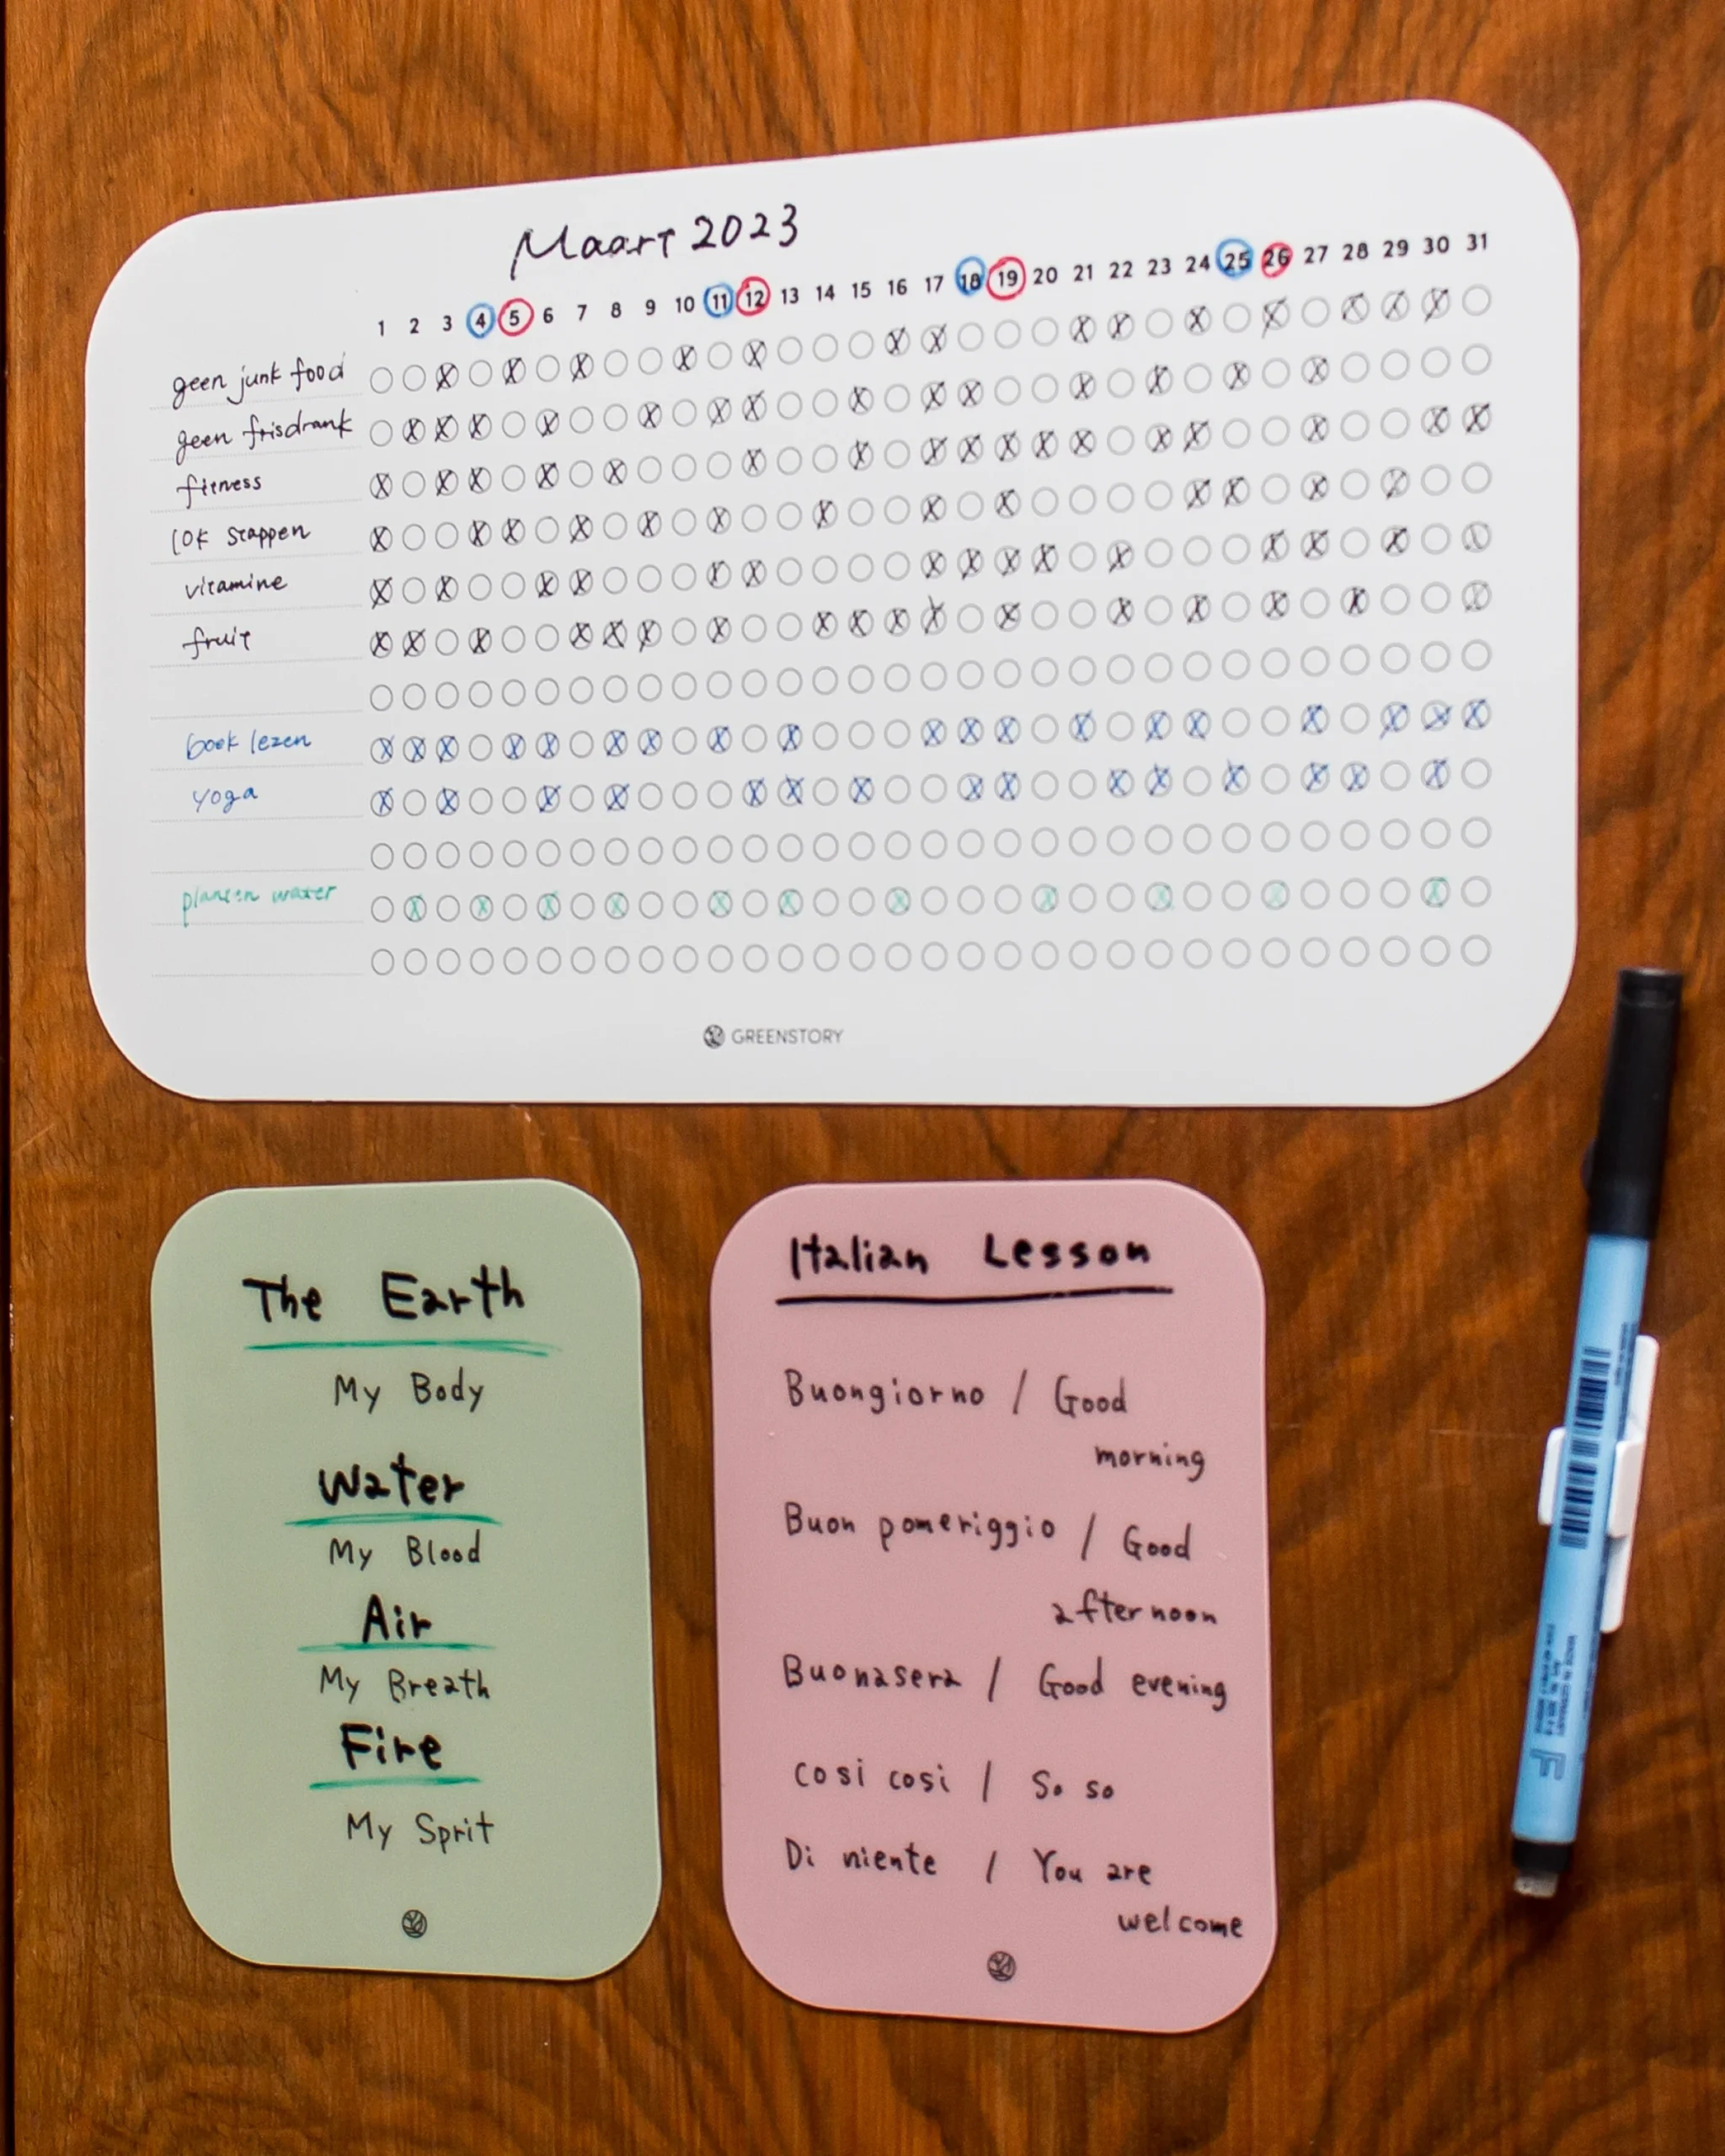 Maart 2023
1 2 3 4 5 6 7 8 9 10 11 12 13 14 15 16 17 18 19 20 21 22 23 24 25 26 27 28 29 30 31
geen junk food
geen frisdrank
fitness
10k stappen
vitamine
fruit
boek lezen
yoga
planten water
GREENSTORY
The Earth
My Body
Water
My Blood
Air
My Breath
Fire
My Sprit
Italian Lesson
Buongiorno / Good
morning
Buon pomeriggio / Good
afternoon
Buonasera / Good evening
cosi cosi / So so
Di niente / You are
welcome
F